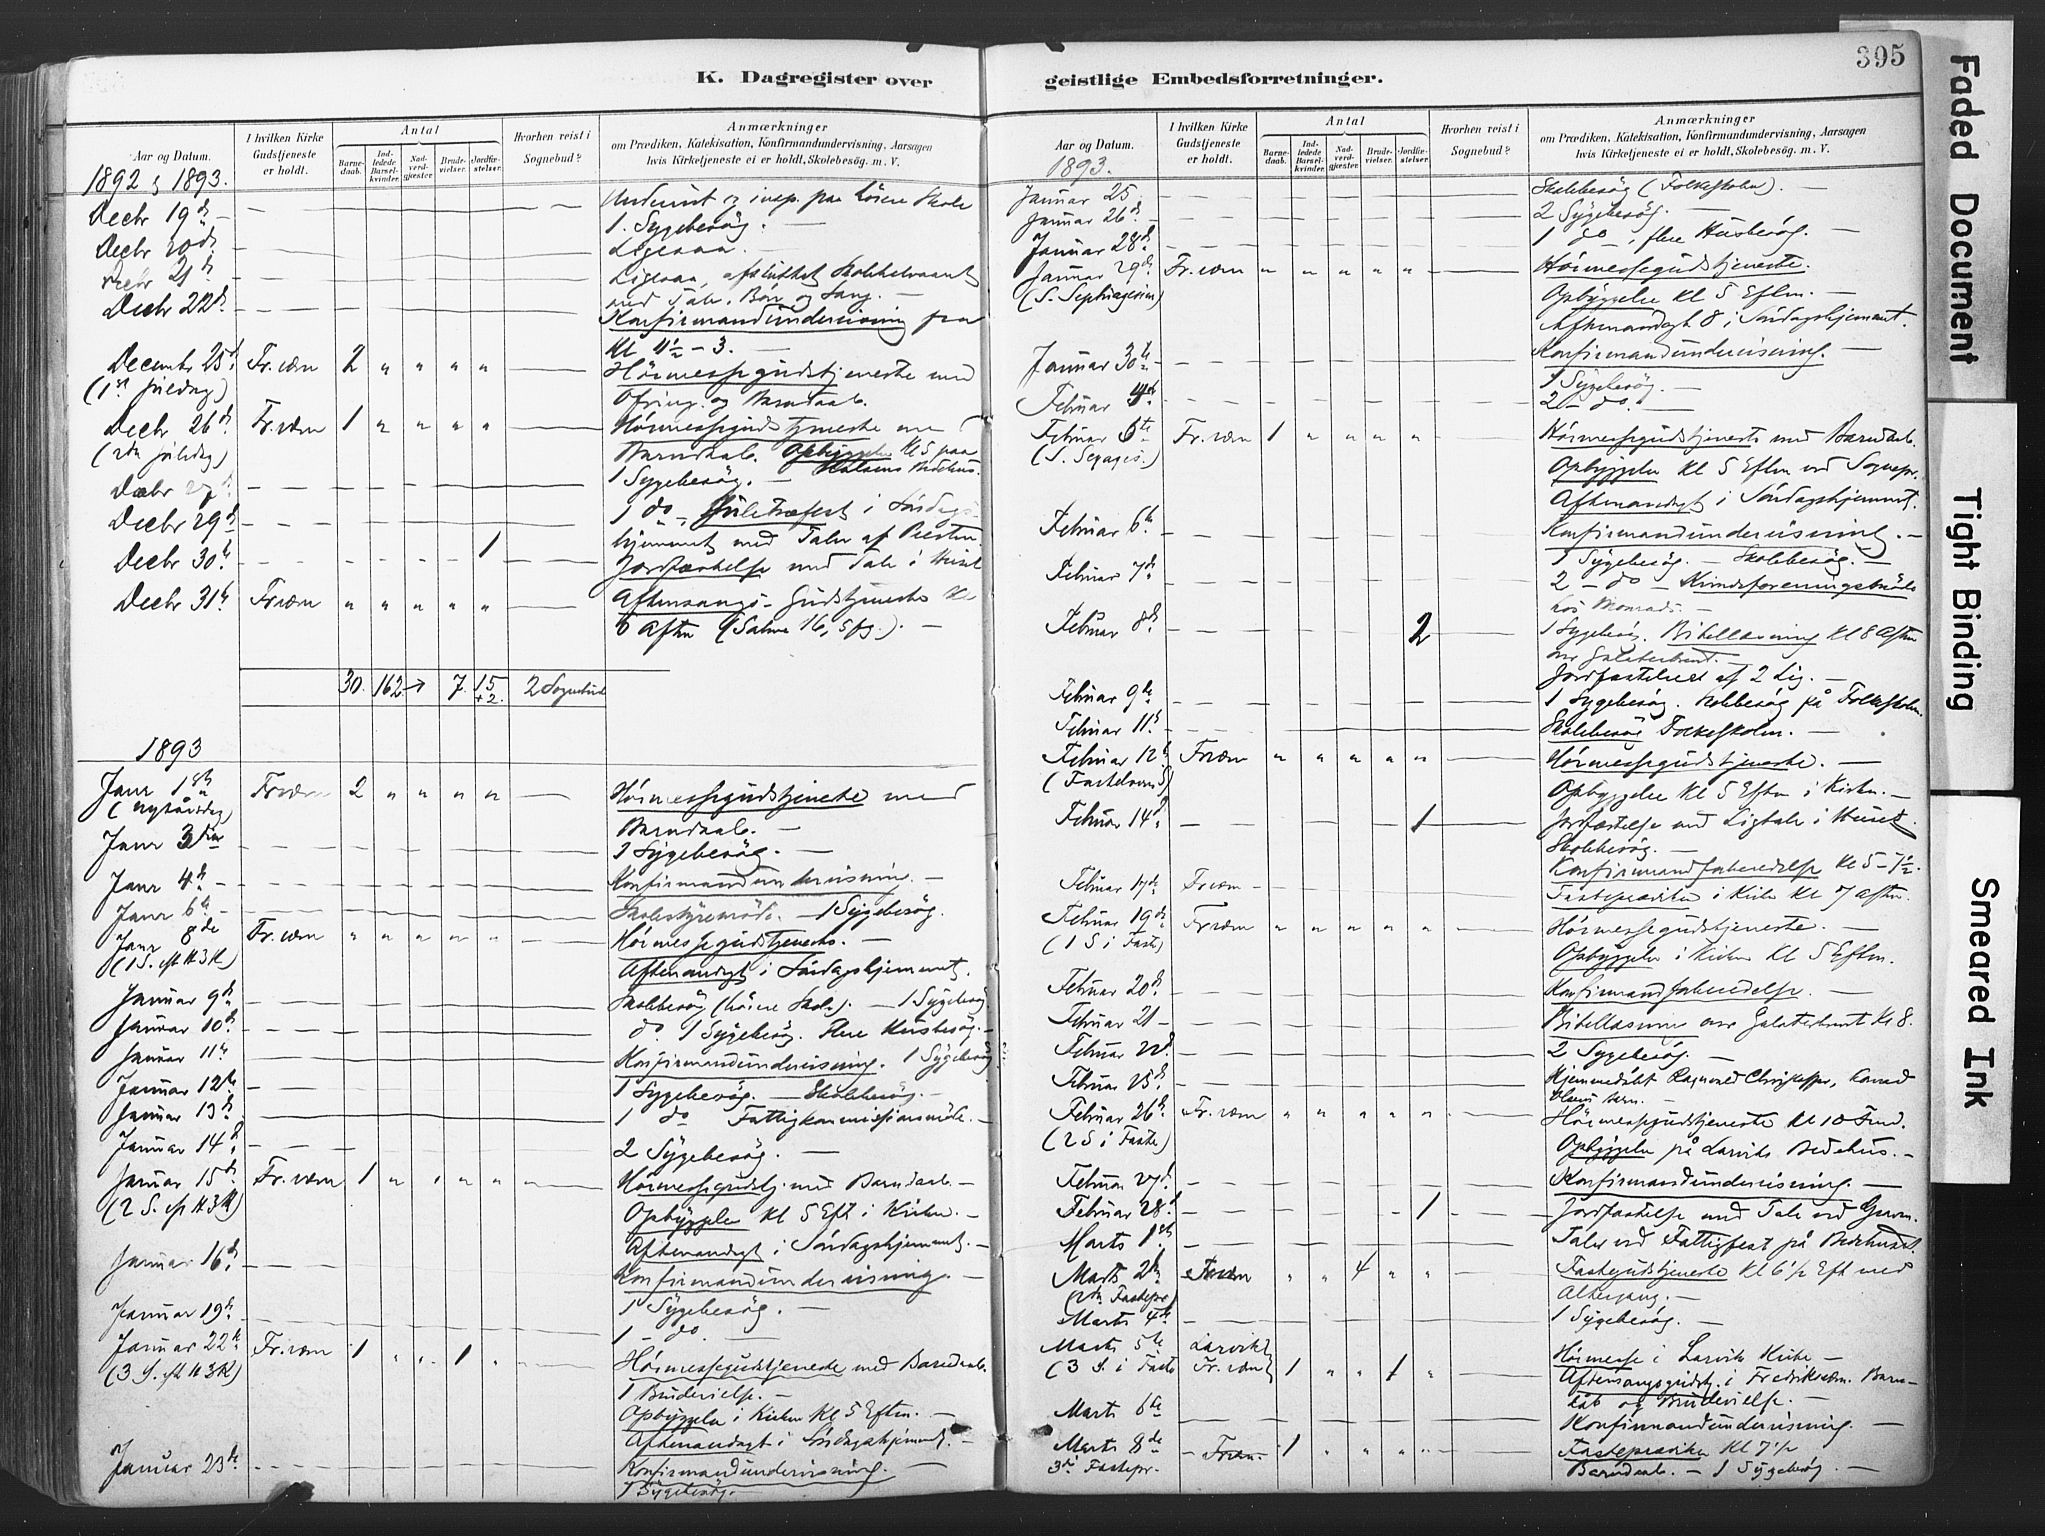 K. Dagregister over
geistlige Embedsforretninger.
395
Aar og Datum.
I hvilken Kirke Gudstjeneste er holdt.
Antal
Barnedaab.
Indledede Barselkvinder.
Nadverdgjester.
Brudevielser.
Jordfæstelser.
Hvorhen reist i Sognebud?
Anmærkninger
om Prædiken, Katekisation, Konfirmandundervisning, Aarsagen
hvis Kirketjeneste ei er holdt, Skolebesøg. m. V.
1892 & 1893.
Decbr 19d — paa høiere Skole
Decbr 20d 1 Sygebesøg. —
Decbr 21d Ligesaa. —
Decbr 22d Ligesaa, afsluttet
med Tale, Bøn og Sang. —
Konfirmandundervisning fra
Kl 4½ - 3. —
Decembr 25d Fr.værn 2 " " " " — Høimessegudstjeneste med
(1st Juledag) Ofring og Barndaab.
Decbr 26d Fr.værn 1 " " " " — Høimessegudstjeneste
(2den Juledag) Barndaab. Opbyggelse Kl 5 paa
Bedehus.
Decbr 27d 1 Sygebesøg. —
Decbr 29d 1 do — Juletræfest i Søndags-
hjemmet med Taler af Presten
Decbr 30te 1 Jordfæstelse med Tale i Huset
Decbr 31te Fr.værn " " " " " — Aftensangs-Gudstjeneste Kl
6 Aften (Salme 16, 5 fg.). —
30. 162 → 7. 15 +2. 2 Sognebud
1893
Janr 1ste Fr.værn 2 " " " " — Høimessegudstjeneste med
(Nytårsdag) Barndaab. —
Janr 3die 1 Sygebesøg. —
Janr 4de — Konfirmandundervisning. —
Janr 6te — Skolestyremøde. — 1 Sygebesøg.
Janr 8de Fr.værn " " " " " — Høimessegudstjeneste. —
(1 S. eft H3K) Aftenandagt i Søndagshjemmet.
Januar 9de Skolebesøg (høiere Skole). — 1 Sygebesøg
Januar 10de do. 1 Sygebesøg. Flere Husbesøg. —
Januar 11te Konfirmandundervisning. 1 Sygebesøg
Januar 12te 1 Sygebesøg. — Skolebesøg. —
Januar 13de 1 do Fattigkommissionsmøde. —
Januar 14d 2 Sygebesøg. —
Januar 15de Fr.værn 1 " " " " — Høimessegudstj. med Barndaab. —
(2 S. eft H3K) Opbyggelse Kl 5 Eft i Kirken. —
Aftenandagt i Søndagshjemmet. —
Januar 16de Konfirmandundervisning. —
1 Sygebesøg. —
Januar 19de 1 - do. —
Januar 22de Fr.værn 1 " " 1 " Høimessegudstjeneste med Barndaab.
(3 S. eft H3K) 1 Brudevielse. —
Opbyggelse i Kirken Kl 5 Eftm. —
Aftenandagt i Søndagshjemmet. —
Januar 23de Konfirmandundervisning. —
1 Sygebesøg. —
Aar og Datum.
I hvilken Kirke Gudstjeneste er holdt.
Antal
Barnedaab.
Indledede Barselkvinder.
Nadverdgjester.
Brudevielser.
Jordfæstelser.
Hvorhen reist i Sognebud?
Anmærkninger
om Prædiken, Katekisation, Konfirmandundervisning, Aarsagen
hvis Kirketjeneste ei er holdt, Skolebesøg. m. V.
1893.
Januar 25 Skolebesøg (Folkeskolen).
Januar 26d 2 Sygebesøg. —
Januar 28d 1 do —, flere Husbesøg. —
Januar 29d Fr.værn " " " " " — Høimessegudstjeneste.
(S. Septuagesim) Opbyggelse Kl 5 Eftm. —
Aftenandagt 8 i Søndagshjemmet.
Januar 30te Konfirmandundervisning. —
1 Sygebesøg. —
Februar 4de 2 - do. —
Februar 5te Fr.værn 1 " " " " — Høimessegudstjeneste med Barndaab.
(S. Sexages.) Opbyggelse Kl 5 Eftm ved Sognepr.
Aftenandagt i Søndagshjemmet.
Februar 6te Konfirmandundervisning. —
1 Sygebesøg. — Skolebesøg. —
Februar 7de 2 - do — Kvindeforeningsmøde
hos Monrads. —
Februar 8de 2 — 1 Sygebesøg. Bibellæsning Kl 8 Aften
over Galaterbrevet. —
Jordfæstelse af 2 Lig. —
Februar 9de 1 Sygebesøg. Skolebesøg på Folkeskolen.
Februar 11te Skolebesøg Folkeskolen. —
Februar 12te Fr.værn " " " " " — Høimessegudstjeneste. —
(Fastelavns S) Opbyggelse Kl 5 Eftm i Kirken. —
Februar 14d 1 Jordfæstelse med Ligtale i Huset.
Skolebesøg. —
Konfirmandforberedelse Kl 5-7½.
Februar 17de Fr.værn — Fasteprædiken i Kirken Kl 7 Aften.
Februar 19de Fr.værn " " " " " — Høimessegudstjeneste. —
(1 S i Faste) Opbyggelse i Kirken Kl 5 Eftm.
Februar 20d Konfirmandforberedelse. —
Februar 21 — Bibellæsning over Galaterbrevet Kl 8.
Februar 22d 2 Sygebesøg. —
Februar 25d Hjemmedøbt
Februar 26de Fr.værn " " " " " — Høimessegudstjeneste Kl 10 Form.
(2 S i Faste) Opbyggelse på Larviks Bedehus. —
Februar 27d Konfirmandundervisning. —
Februar 28d 1 — Jordfæstelse med Tale ved Graven.
Marts 1ste Taler ved Fattigfest på Bedehuset.
Marts 2den Fr.værn " " 4 " " — Fastegudstjeneste Kl 6½ Eft med
(2den Fastepr) Altergang. —
Marts 4de 1 Sygebesøg. —
Marts 5te Larvik Høimesse i Larvik Kirke —
(3 S. i Faste Fr.værn 1 " " 1 " — Aftensangsgudstj. i Fredriksværn. Barn-
dåb og Brudevielse. —
Marts 6te Konfirmandundervisning. —
Marts 8de Fr.værn 1 " " " " — Fasteprædiken Kl 7½
3die Fastepr. Barndaab. — 1 Sygebesøg. —
Faded Document
Tight Binding
Smeared Ink